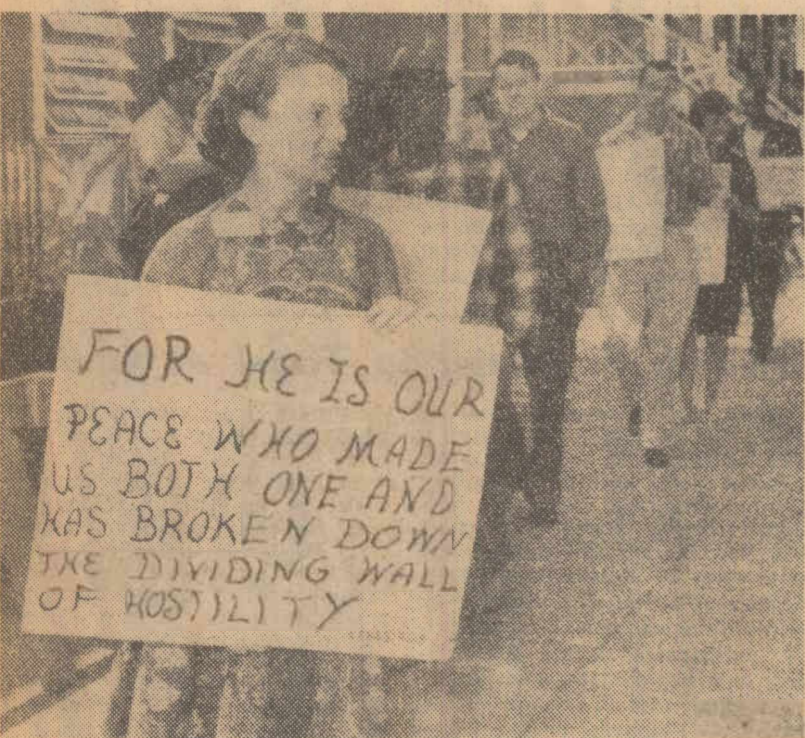 FOR HE IS OUR
PEACE WHO MADE
US BOTH ONE AND
HAS BROKEN DOWN
THE DIVIDING WALL
OF HOSTILITY